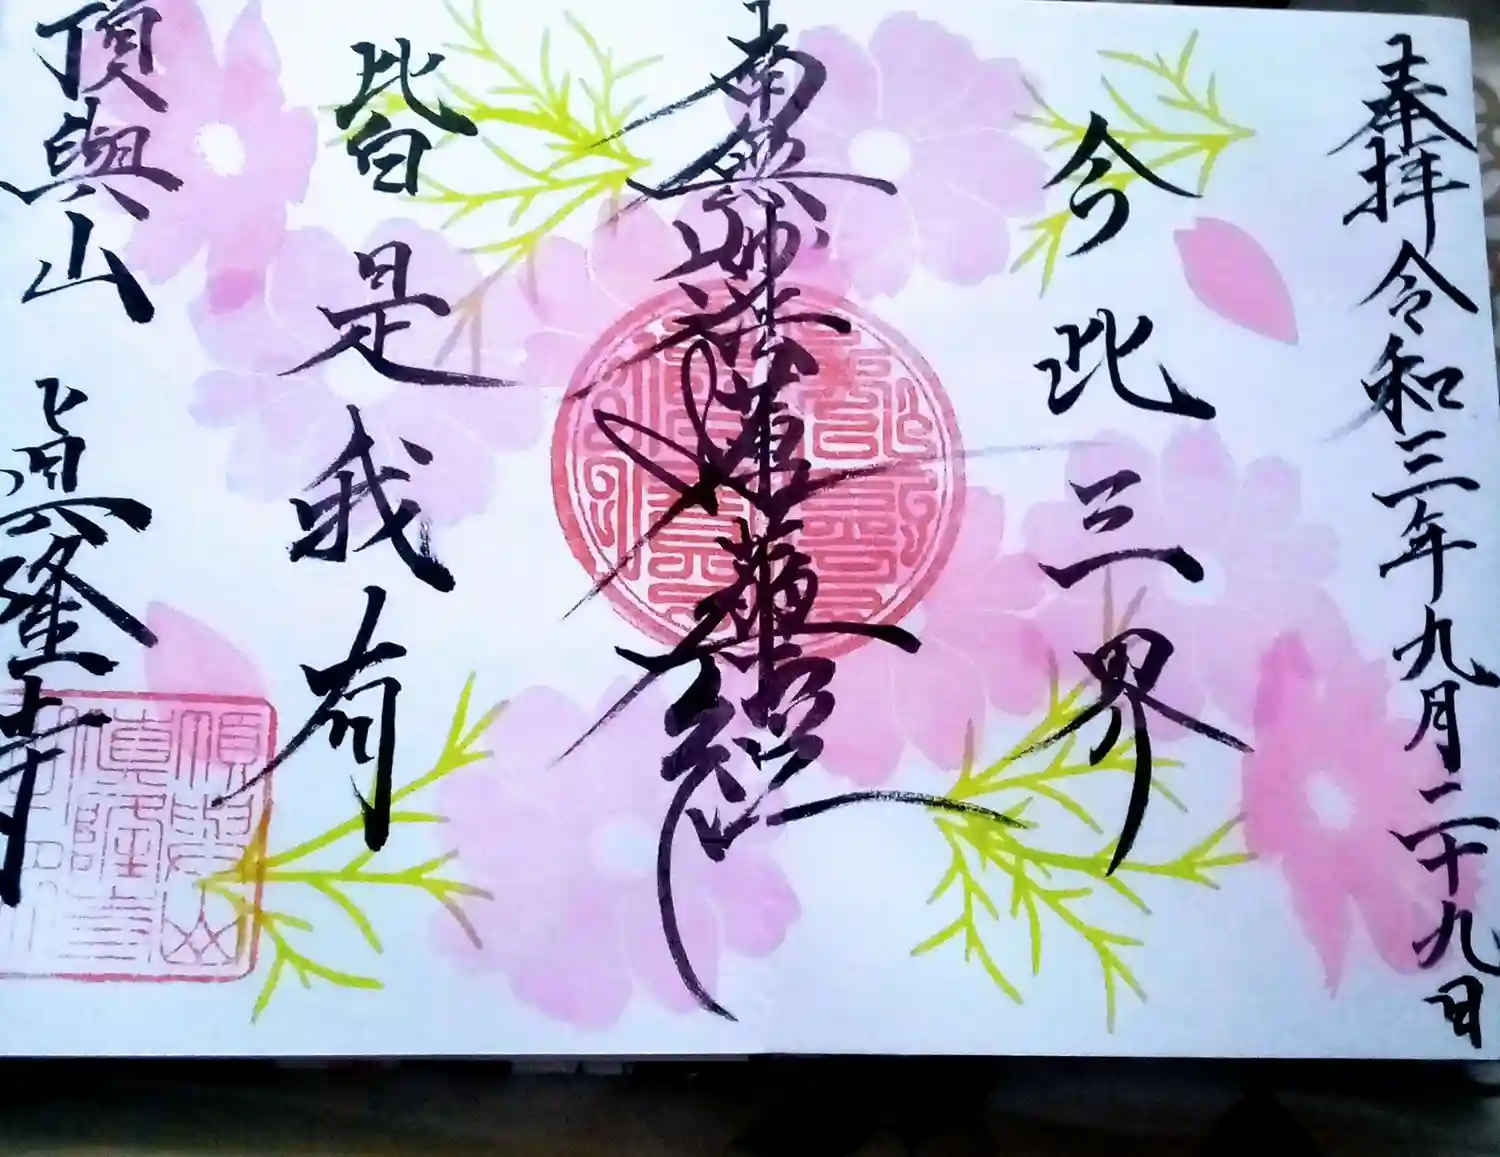 奉拝 令和三年九月二十九日
今此三界
南無妙法蓮華経
皆是我有
頂與山 眞隆寺